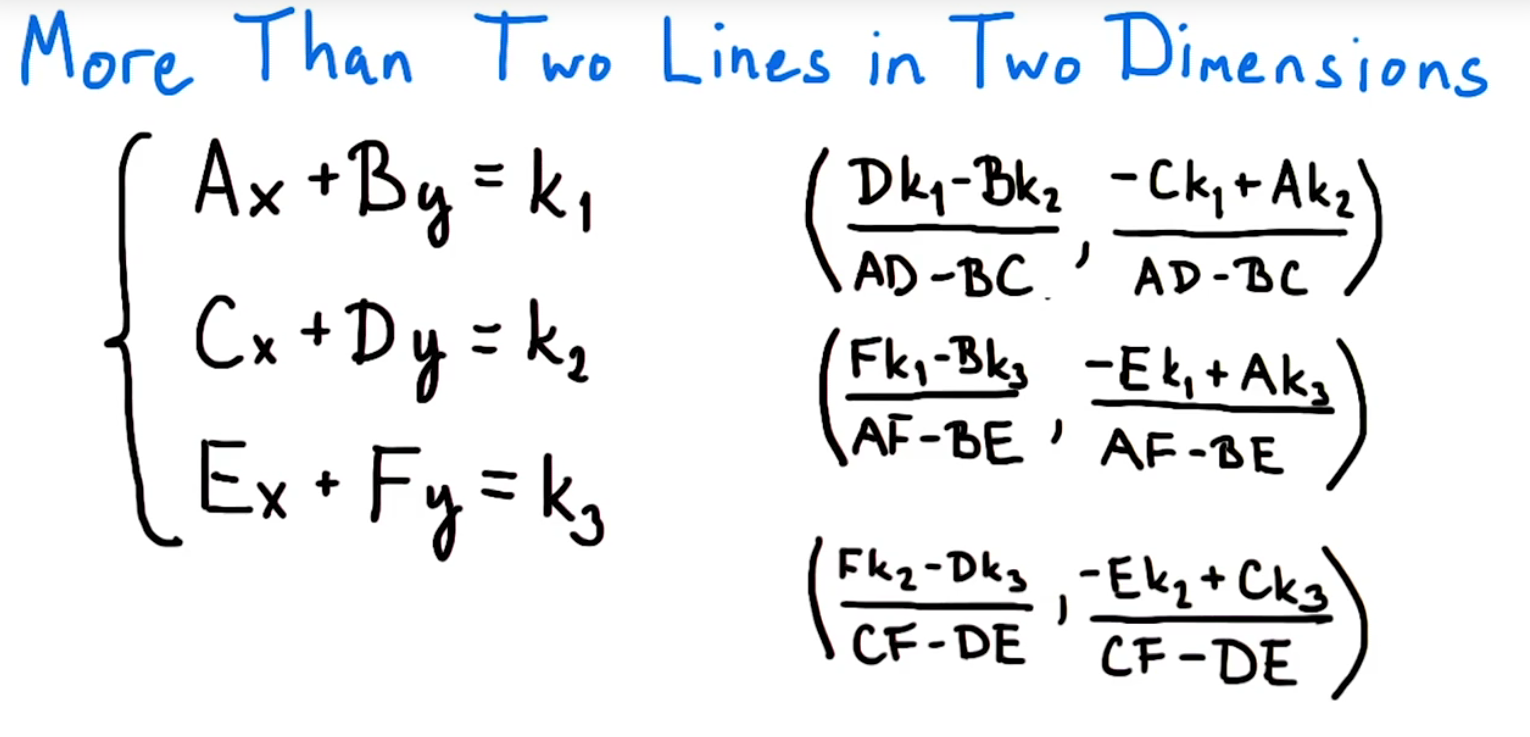 More Than Two Lines in Two Dimensions
Ax + By = k₁
Cx + Dy = k₂
Ex + Fy = k₃
(Dk₁-Bk₂/AD-BC, -Ck₁+Ak₂/AD-BC)
(Fk₁-Bk₃/AF-BE, -Ek₁+Ak₃/AF-BE)
(Fk₂-Dk₃/CF-DE, -Ek₂+Ck₃/CF-DE)